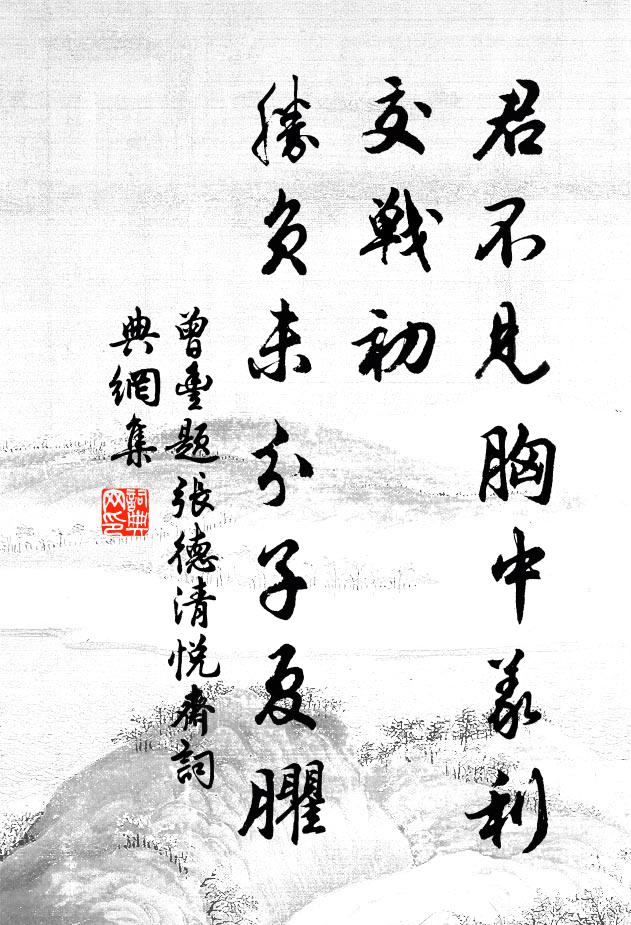 君不見胸中義利
交戰初
勝負未分子夏臞
曾豊題張德清悅齋詞
典網集
詞典網印